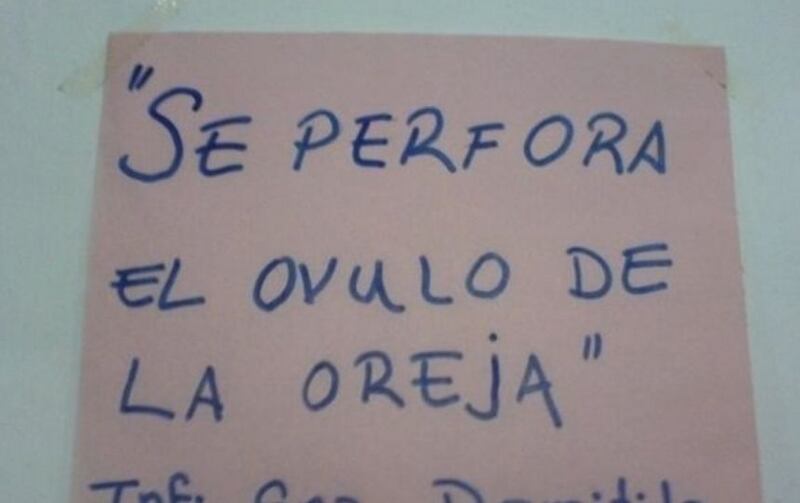 "SE PERFORA
EL OVULO DE
LA OREJA"
Inf: